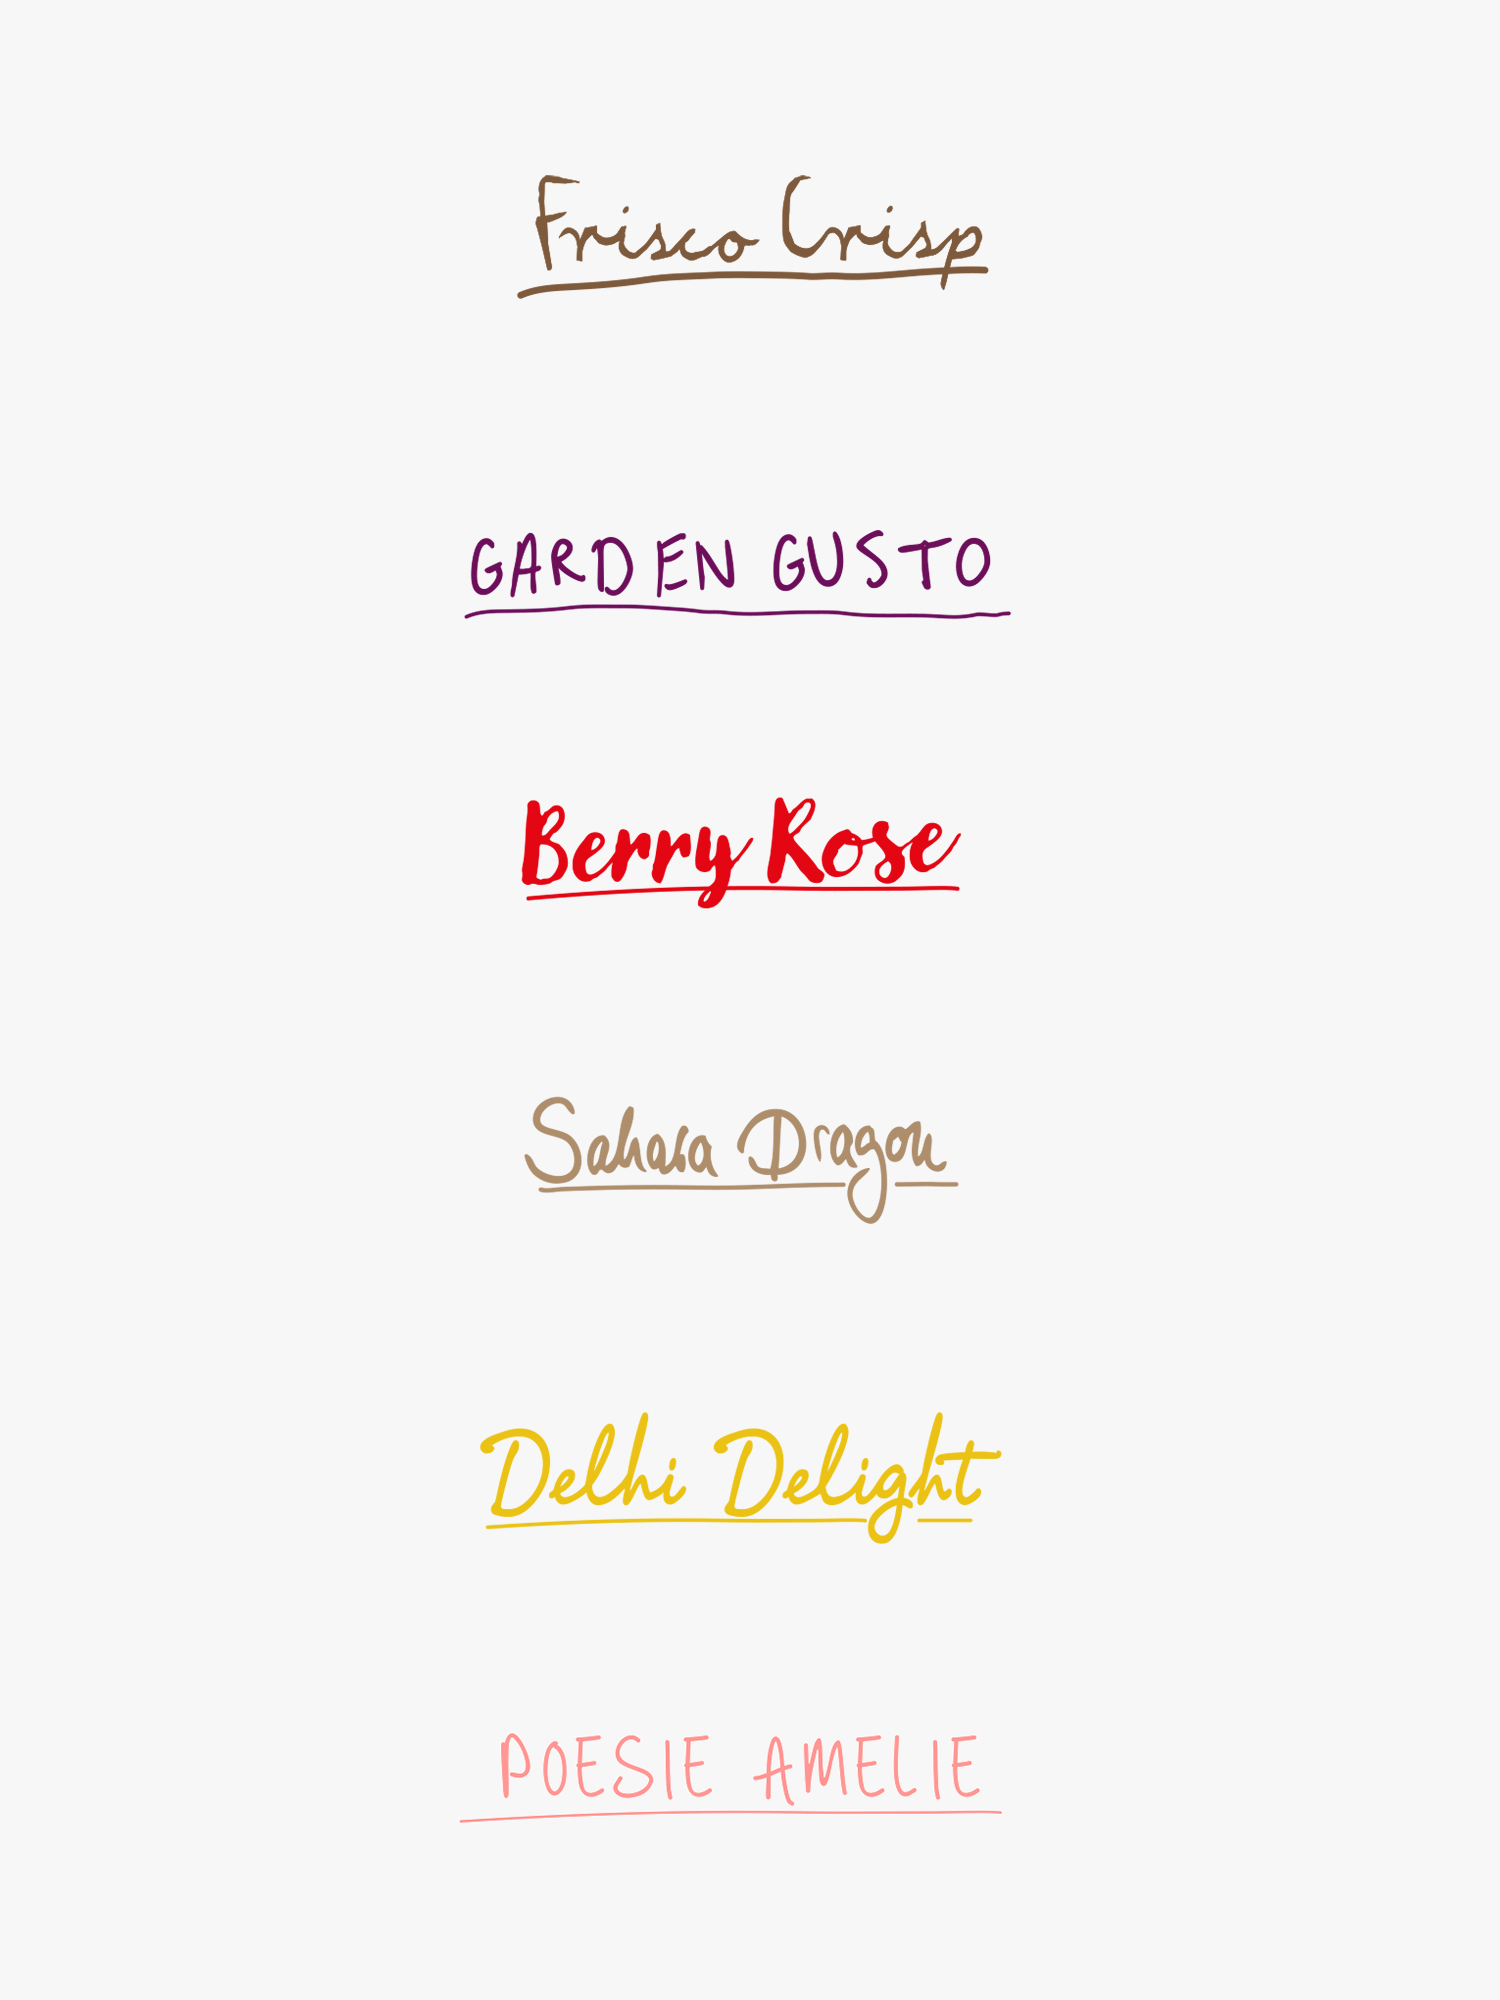 Frisco Crisp
GARDEN GUSTO
Berry Rose
Sahara Dragon
Delhi Delight
POESIE AMELIE